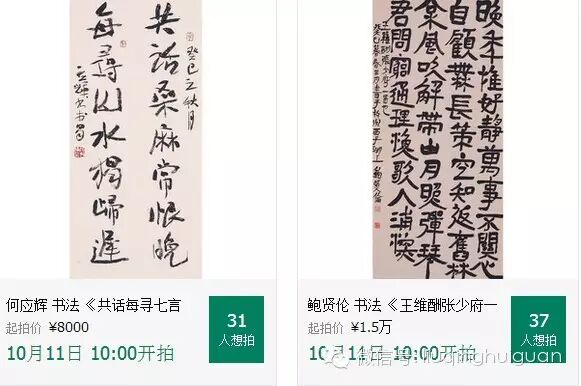 共話桑麻常恨晚
癸巳之秋月
每尋山水歸遲
晚年惟好靜萬事不關心
自顧無長策空知返舊林
松風吹解帶山月照彈琴
君問窮通理漁歌入浦深
王維酬張少府
何应辉 书法《共话每寻七言
起拍价 ¥8000
10月11日 10:00开拍
31
人想拍
鲍贤伦 书法《王维酬张少府一
起拍价 ¥1.5万
10月11日 10:00开拍
37
人想拍
微信号: